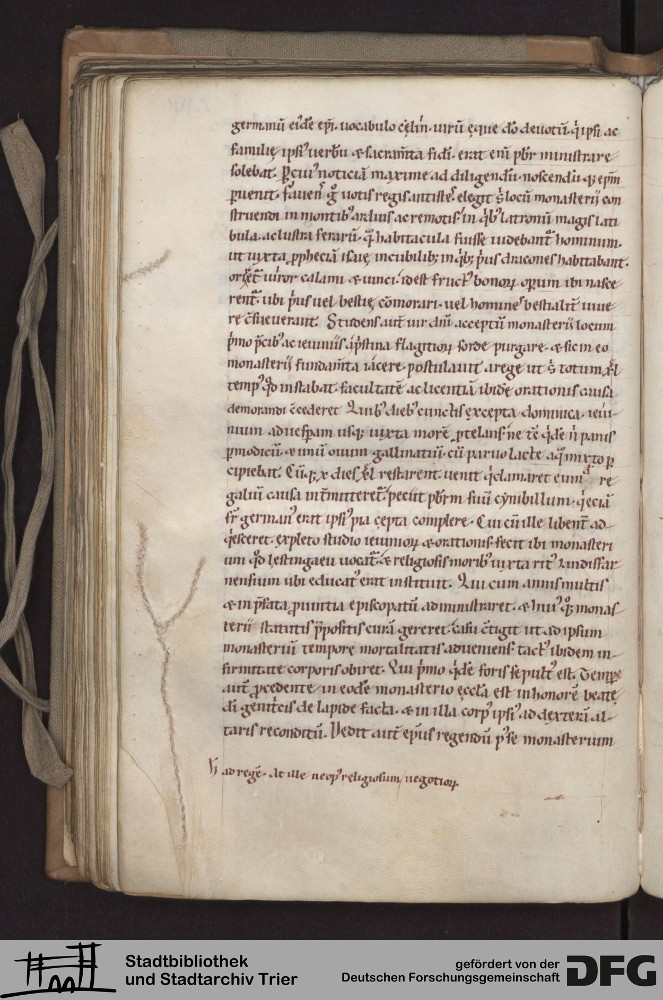 germanũ eiđe epĩ. uocabulo cęlin. uirũ ęque đo deuotũ. q̇ ipsi ac
familię ipsiꝰ uerbũ & sacram̃ta fidi. erat enĩ pbr̃ ministrare
solebat. Ꝑ cuiꝰ noticiã maxime ad diligendũ. noscendũ q; epm̃
ꝑuenit. fauens̃ g̊ uotis regis antistes̃ elegit s̃ locũ monasterij con
struendi in montibꝰ arduis ac remotis. in q̇bꝰ latronũ magis lati
bula. ac lustra ferarũ. q̃ habitacula fuisse uidebant̃ hominum.
ut iuxta ꝓpheciã isaię. in cubilib; in q̇b; pͥus dracones habitabant.
oriret̃ uiror calami & iunci. id est fructꝰ bonoꝝ opum ibi nasce
rent̃. ubi pͥus uel bestię cõmorari. uel homines bestialit̃ uiue
re c̃sueuerant. Studens aut̃ uir dñi acceptũ monasterij locum
pͥmo pͨibꝰ ac ieiuniis a pͥstina flagitioꝝ sorde purgare. & sic in eo
monasterij fundam̃ta iacere. postulauit a rege ut s̃ totum xl
tempꝰ q̊d instabat facultatẽ ac licentiã ibidẽ orationis causa
demorandi c̃cederet Quibꝰ diebꝰ cunctis excepta dominica. ieiu-
nium ad uesꝑam usq; iuxta morẽ ꝓtelans. ne tc̃ q̇dẽ n̄ panis
ꝑmodicũ & unũ ouum gallinatiũ. cũ paruo lacte aq̃ mixto ꝑ
cipiebat. Cũq; x dies xl restarent. uenit q̇ clamaret eum a re
galiũ causa int̃mitteret̃. peciit pbr̃m suũ cynibillum. q̇ eciã
fr̃ germanꝰ erat ipsiꝰ pia cępta complere. Cui cũ ille libent̃ ad-
q̇esceret. expleto studio ieiunioꝝ & orationis. fecit ibi monasteri
um q̊d lestingaeu uocat̃. & religiosis moribꝰ iuxta ritꝰ Lindisfar
nensium ubi educatꝰ erat instituit. Qui cum annis multis
& in p̃fata ꝓuintia episcopatũ administraret. & huiꝰ q̊; monas
terii statutis p̃positis curã gereret. casu c̃tigit ut ad ipsum
monasteriũ tempore mortalitatis adueniens. tactꝰ ibidem in-
firmitate corporis obiret. Qui pͥmo q̇dẽ foris sepultꝰ est. Tempore
aut̃ ꝓcedente in eodẽ monasterio ęccl̃a est in honorẽ beatę
dĩ genit̃cis de lapide facta. & in illa corpꝰ ipsiꝰ ad dexterũ al-
taris reconditũ. Dedit aut̃ ep̃us regendũ p̾ se monasterium
h̵ ad regẽ. At ille ne opꝰ religiosum, negotioꝝ.
Stadtbibliothek
und Stadtarchiv Trier
gefördert von der
Deutschen Forschungsgemeinschaft
DFG